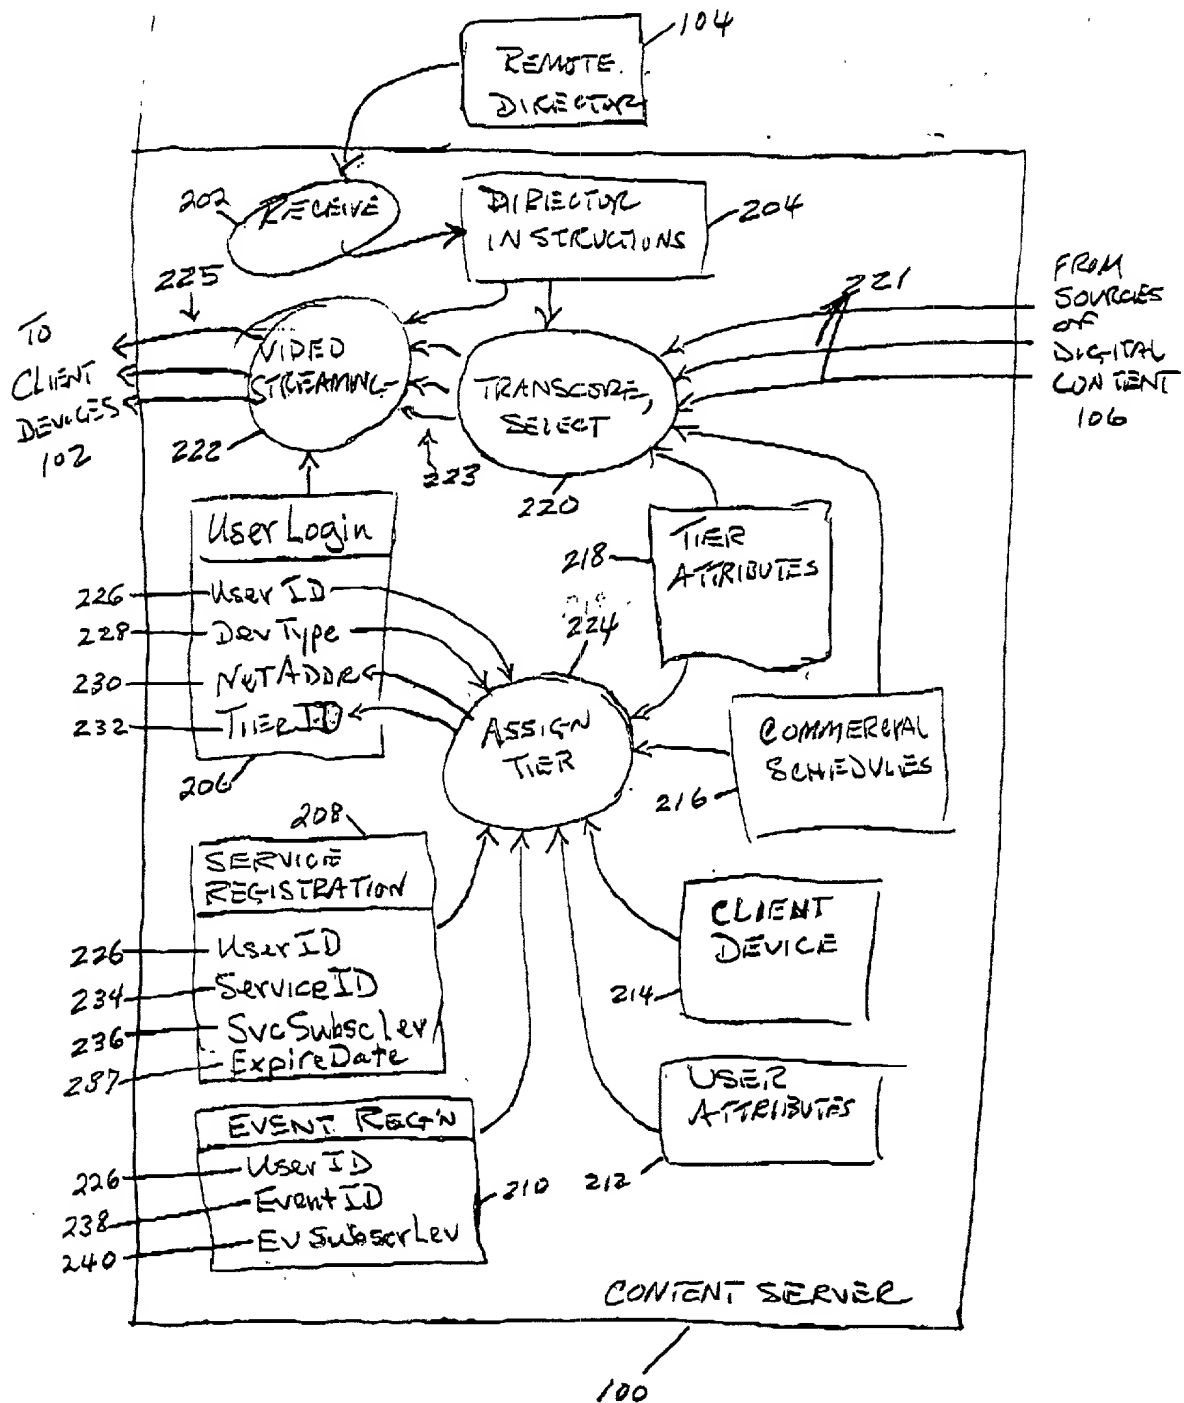 104
REMOTE
DIRECTOR
202
RECEIVE
DIRECTOR
INSTRUCTIONS
204
225
221
FROM
SOURCES
OF
DIGITAL
CONTENT
106
TO
CLIENT
DEVICES
102
VIDEO
STREAMING
222
223
TRANSCODE,
SELECT
220
User Login
226
UserID
228
DevType
230
NETADDR
232
TIERID
206
218
TIER
ATTRIBUTES
224
ASSIGN
TIER
COMMERCIAL
SCHEDULES
216
208
SERVICE
REGISTRATION
226
UserID
234
ServiceID
236
SvcSubscLev
237
ExpireDate
CLIENT
DEVICE
214
USER
ATTRIBUTES
212
EVENT REG'N
226
UserID
238
EventID
240
EvSubscrLev
210
CONTENT SERVER
100